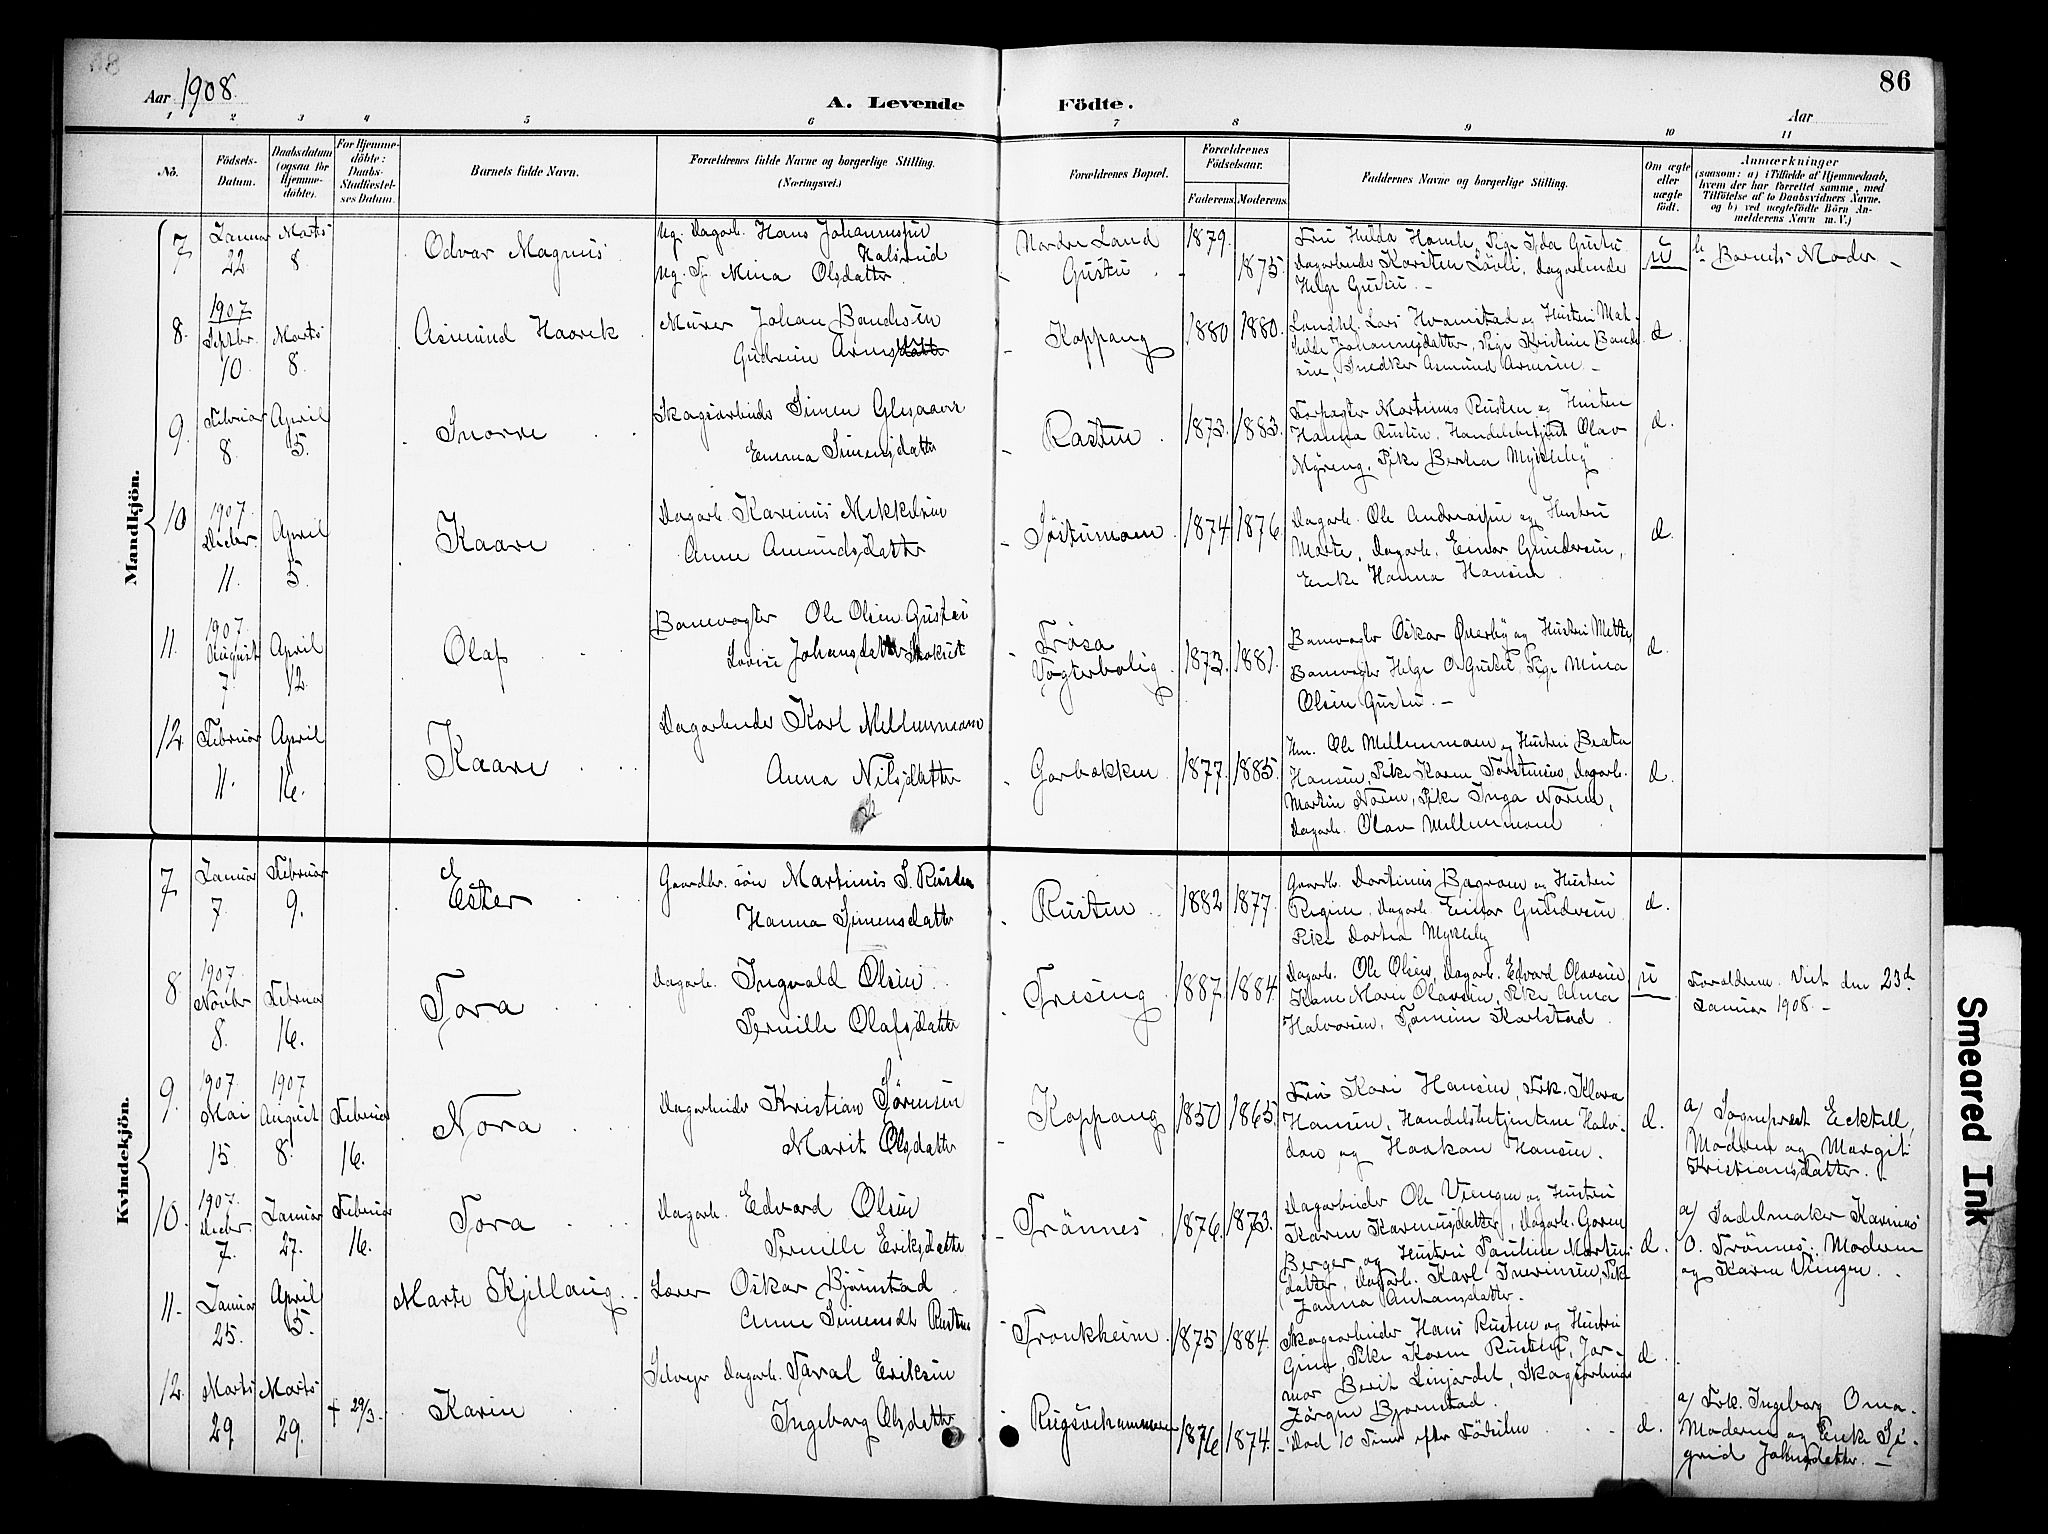 86
Aar 1908.
A. Levende Födte.
Aar
1 2 3 4 5 6 7 8 9 10 11
No.
Födsels-Datum.
Daabsdatum (ogsaa för Hjemme-döbte).
For Hjemme-döbte: Daabs-Stadfæstel-ses Datum.
Barnets fulde Navn.
Forældrenes fulde Navne og borgerlige Stilling. (Næringsvei.)
Forældrenes Bopæl.
Forældrenes Födselsaar.
Faderens. Moderens.
Faddernes Navne og borgerlige Stilling.
Om ægte eller uægte födt.
Anmærkninger
(saasom: a) i Tilfælde af Hjemmedaab, hvem der har forrettet samme, med Tilföielse af to Daabsvidners Navne. og b) ved uægtefödte Börn An-melderens Navn m. V.)
Mandkjön.
7 Januar 22 Marts 8. Odvar Magnus
Ug. Dagarb. Hans Johannessen Halsrud
Ug. Pi. Mina Olsdatter
Nordre Land
Gustu
1879. 1875.
Fru Hulda Homle, Pige Ida Gustu
Dagarbeider Karsten Løvli, Dagarbeide
Helge Gustu. —
u
b. Barnets Moder —
8. 1907 Septbr. 10 Marts 8. Asmund Haarek
Murer Johan Bendiksen
Gudrun Arnesdatter
Koppang 1880 1880.
Landhl. Lars Hvamstad og Hustru Mat-
hilde Johannesdatter, Pige Kristine Bendik-
sen, Snedker Asmund Arnesen —
d.
9. Februar 8. April 5. Snorre
Skogsarbeider Simen
Emma Simensdatter
Rasten 1873. 1883.
Forpagter Martinus Rusten og Hustru
Hanna Rusten, Handelsbetjent Olav
Myreng, Pike Bertha Mykleby
d.
10 1907. Decbr. 11. April 5. Kaare
Dagarb. Karinius Mikkelsen
Anne Amundsdatter
1874 1876.
Dagarb. Ole Andreassen og Hustru
Marte, Dagarb. Einar Gundersen,
Enke Hanna Hansen.
d.
11. 1907. August 7. April 12. Olaf
Banevogter Ole Olsen Gustu
Lovise Johansdatter
Trøsa
Vogterbolig 1873. 1881.
Banevogter Oskar Øverby og Hustru Mette,
Banevogter Helge O. Gustu, Pige Mina
Olsen Gustu. —
d.
12. Februar 11. April 16. Kaare
Dagarbeider Karl Mellemmoen
Anna Nilsdatter
Garbakken 1877. 1885.
Hm. Ole Mellemmoen og Hustru Beata
Hansen, Pike Karen Torstensen, Dagarb.
Martin Noren, Pike Inga Noren,
Dagarb. Olav Mellemmoen
d.
Kvindekjön.
7 Januar 7. Februar 9. Ester
Gaardbr. søn Martinus S. Rusten
Hanna Simensdatter
Rusten 1882 1877.
Gaardb. Dortinus Bagroen og Hustru
Regine, Dagarb. Einar Gundersen
Pike Dortea Mykleby
d.
8 1907. Novbr 8. Februar 16. Tora
Dagarb. Ingvald Olsen
Pernille Olafsdatter
Tresing 1887. 1884.
Dagarb. Ole Olsen, Dagarb. Edvard Olavsen,
Karen Marie Olavsen, Pike Alma
Halvorsen, Karlstad
u
Forældrene Viet den 23de
Januar 1908. —
9. 1907 Mai 15 1907 August 8. Februar 16. Nora
Dagarbeider Kristian Sørensen
Marit Olsdatter
Koppang 1850 1865.
Fru Kari Hansen, Frk. Klara
Hansen, Handelsbetjentene Halv-
dan og Haakon Hansen.
d.
a/ Sogneprest Ecktell,
Moderen og Margit
Kristiansdatter.
10. 1907. Decbr. 7. Januar 27. Februar 16. Tora
Dagarb. Edvard Olsen
Pernille Eriksdatter
Trønnes 1876. 1873.
Dagarbeider Ole Vingen og Hustru
Karen Karinusdatter, Dagarb. Goren
Berger og Hustru Pauline Martins-
datter, Dagarb. Karl Iversensen, Pike
Janna Antonsdatter.
d.
a/ Sadelmaker Karinus
O. Trønnes, Moderen
og Karen Vingen.
11. Januar 25. April 5. Marte Kjellaug
Lærer Oskar Bjørnstad
Anne Simensdt Rusten
Tronkheim. 1875 1884.
Skogsarbeider Hans Rusten og Hustru
Gina, Pike Karen Rusten, Jor-
mor Berit Linjordet, Skogsarbeider
Jørgen Bjørnstad.
d.
12. Marts 29 Marts 29. † 29/3. Karin
Selveier Dagarb. Taral Eriksen
Ingeborg Olsdatter
1876 1874.
Død 10 Timer efter Fødselen
d.
a/ Frk. Ingeborg Oma.
Moderen og Enke Si-
grid Johnsdatter. —
Smeared Ink